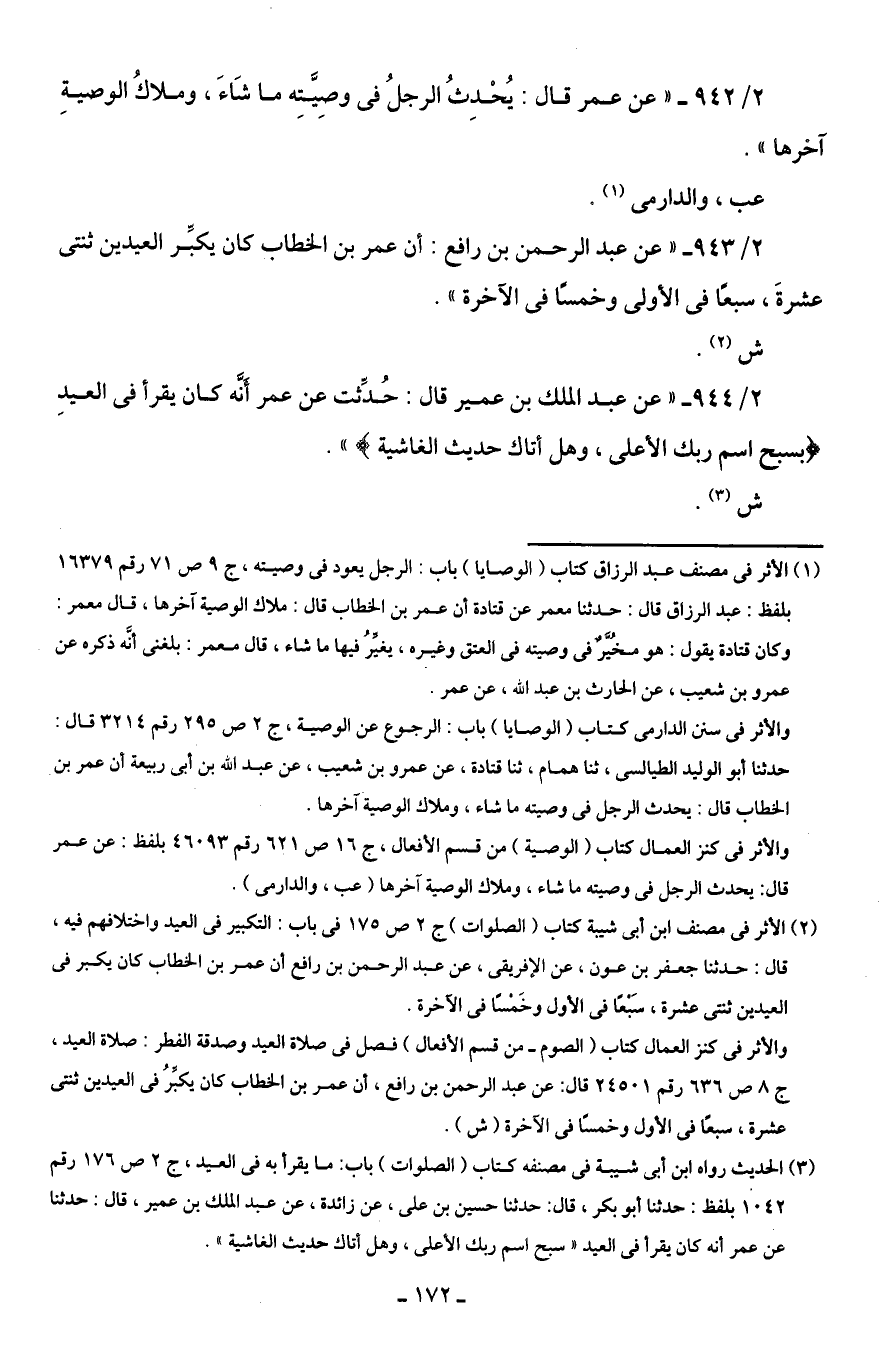 ٢/ ٩٤٢ ـ « عن عـمر قـال : يُحْـدِثُ الرجلُ فى وصِيَّتِه مـا شَاءَ ، ومـلاكُ الوصيـةِ
آخرها » .
عب ، والدارمى (١) .
٢/ ٩٤٣ـ « عن عبد الرحـمن بن رافع : أن عمر بن الخطاب كان يكبِّر العيدين ثنتى
عشرةَ ، سبعًا فى الأولى وخمسًا فى الآخرة » .
ش (٢) .
٢/ ٩٤٤ـ « عن عبـد الملك بن عمـير قال : حُـدِّثت عن عمر أَنَّه كـان يقرأ فى العـيدِ
﴿بسبح اسم ربك الأعلى ، وهل أتاك حديث الغاشية ﴾ » .
ش (٣) .
(١) الأثر فى مصنف عـبد الرزاق كتاب ( الوصـايا ) باب : الرجل يعود فى وصيـته ، ج ٩ ص ٧١ رقم ١٦٣٧٩
بلفظ : عبد الرزاق قال : حـدثنا معمر عن قتادة أن عمـر بن الخطاب قال : ملاك الوصية آخرها ، قـال معمر :
وكان قتادة يقول : هو مـخُيَّرٌ فى وصيته فى العتق وغيـره ، يغيِّرُ فيها ما شاء ، قال مـعمر : بلغنى أنَّه ذكره عن
عمرو بن شعيب ، عن الحارث بن عبد الله ، عن عمر .
والأثر فى سنن الدارمى كـتـاب ( الوصـايا ) باب : الرجـوع عن الوصيـة ، ج ٢ ص ٢٩٥ رقم ٣٢١٤ قـال :
حدثنا أبو الوليد الطيالسى ، ثنا همـام ، ثنا قتادة ، عن عمرو بن شعيب ، عن عبـد الله بن أبى ربيعة أن عمر بن
الخطاب قال : يحدث الرجل فى وصيته ما شاء ، وملاك الوصية آخرها .
والأثر فى كنز العمـال كتاب ( الوصية ) من قسم الأفعال ، ج ١٦ ص ٦٢١ رقم ٤٦٠٩٣ بلفظ : عن عـمر
قال: يحدث الرجل فى وصيته ما شاء ، وملاك الوصية آخرها ( عب ، والدارمى ) .
(٢) الأثر فى مصنف ابن أبى شيبة كتاب ( الصلوات ) ج ٢ ص ١٧٥ فى باب : التكبير فى العيد واختلافهم فيه ،
قال : حـدثنا جعفـر بن عـون ، عن الإفريقى ، عن عبـد الرحـمن بن رافع أن عمـر بن الخطاب كان يكـبر فى
العيدين ثنتى عشرة ، سَبْعًا فى الأول وخَمْسًا فى الآخرة .
والأثر فى كنز العمال كتاب ( الصوم ـ من قسم الأفعال ) فـصل فى صلاة العيد وصدقة الفطر : صلاة العيد ،
ج ٨ ص ٦٣٦ رقم ٢٤٥٠١ قال: عن عبد الرحمن بن رافع ، أن عمـر بن الخطاب كان يكبِّرُ فى العيدين ثنتى
عشرة ، سبعًا فى الأول وخمسًا فى الآخرة ( ش ) .
(٣) الحديث رواه ابن أبى شـيبـة فى مصنفه كـتاب ( الصلوات ) باب: مـا يقرأ به فى العـيد ، ج ٢ ص ١٧٦ رقم
١٠٤٢ بلفظ : حدثنا أبو بكر ، قال: حدثنا حسين بن على ، عن زائدة ، عن عـبد الملك بن عمير ، قال : حدثنا
عن عمر أنه كان يقرأ فى العيد « سبح اسم ربك الأعلى ، وهل أتاك حديث الغاشية » .
ـ ١٧٢ ـ